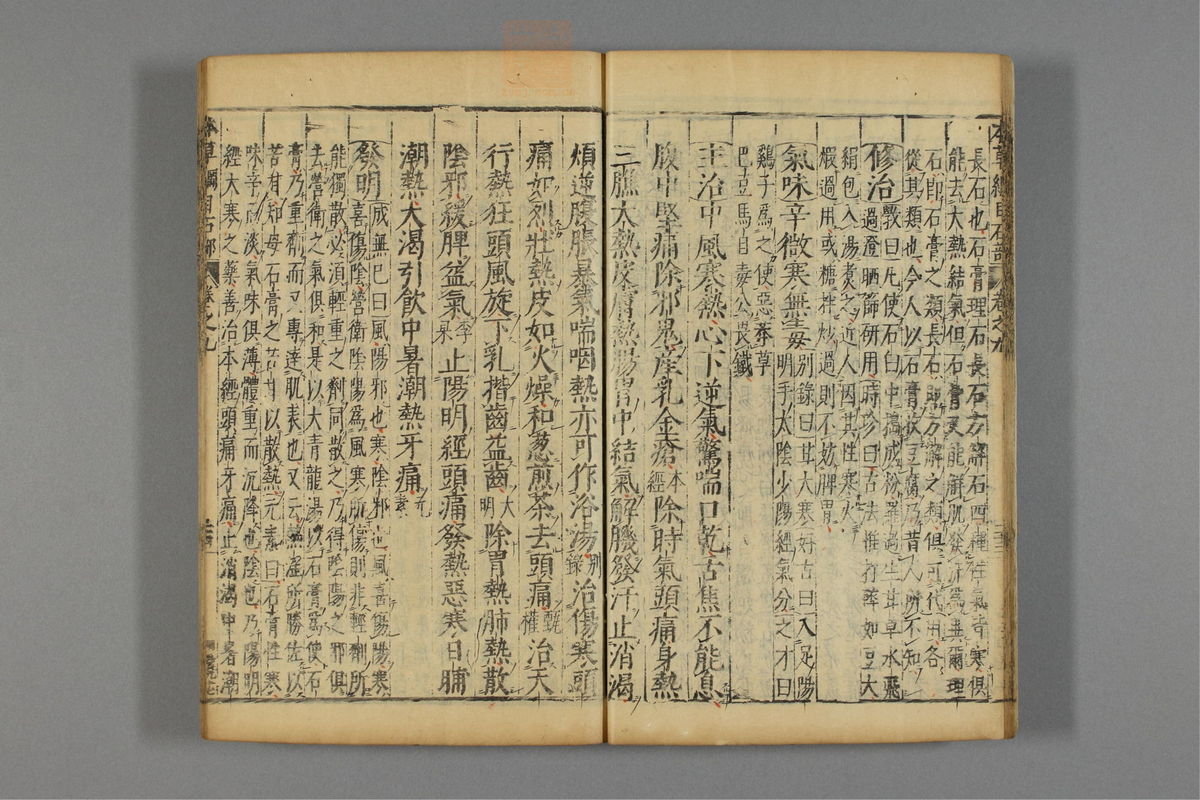 本草綱目石部 卷之九
長石也石膏理石長石方解石四種性氣皆寒俱
能去大熱結氣但石膏又能解肌發汗爲異爾理
石即石膏之類長石即方解之類俱可代用各
從其類也今人以石膏收豆腐乃昔人所不知
修治斆曰凡使石臼中搗成粉羅過生甘草水飛
過澄晒篩研用時珍曰古法惟打碎如豆大
絹包入湯煮之近人因其性寒火
煅過用或糖拌炒過則不妨脾胃
氣味辛微寒無毒別錄曰甘大寒好古曰入足陽
明手太陰少陽經氣分之才曰
雞子爲之使惡莽草
巴豆馬目毒公畏鐵
主治中風寒熱心下逆氣驚喘口乾舌焦不能息
腹中堅痛除邪鬼產乳金瘡本經除時氣頭痛身熱
三膲大熱皮膚熱腸胃中結氣解機發汗止消渴
煩逆腹脹暴氣喘咽熱亦可作浴湯別錄治傷寒頭
痛如烈壯熱皮如火燥和葱煎茶去頭痛甄權治天
行熱狂頭風旋下乳揩齒益齒大明除胃熱肺熱散
陰邪緩脾益氣李杲止陽明經頭痛發熱惡寒日脯
潮熱大渴引飲中暑潮熱牙痛元素
發明成無己曰風陽邪也寒陰邪也風喜傷陽寒
喜傷陰營衛陰陽爲風寒所傷則非輕劑所
能獨散必須輕重之劑同散之乃得陰陽之邪俱
去營衛之氣俱和是以大青龍湯以石膏爲使石
膏乃重劑而又專達肌表也又云熱虛所勝佐以
苦甘知母石膏之苦甘以散熱元素曰石膏性寒
味辛而淡氣味俱薄體重而沉降也陰也乃陽明
經大寒之藥善治本經頭痛牙痛止消渴中暑潮
本草綱目石部 卷之九